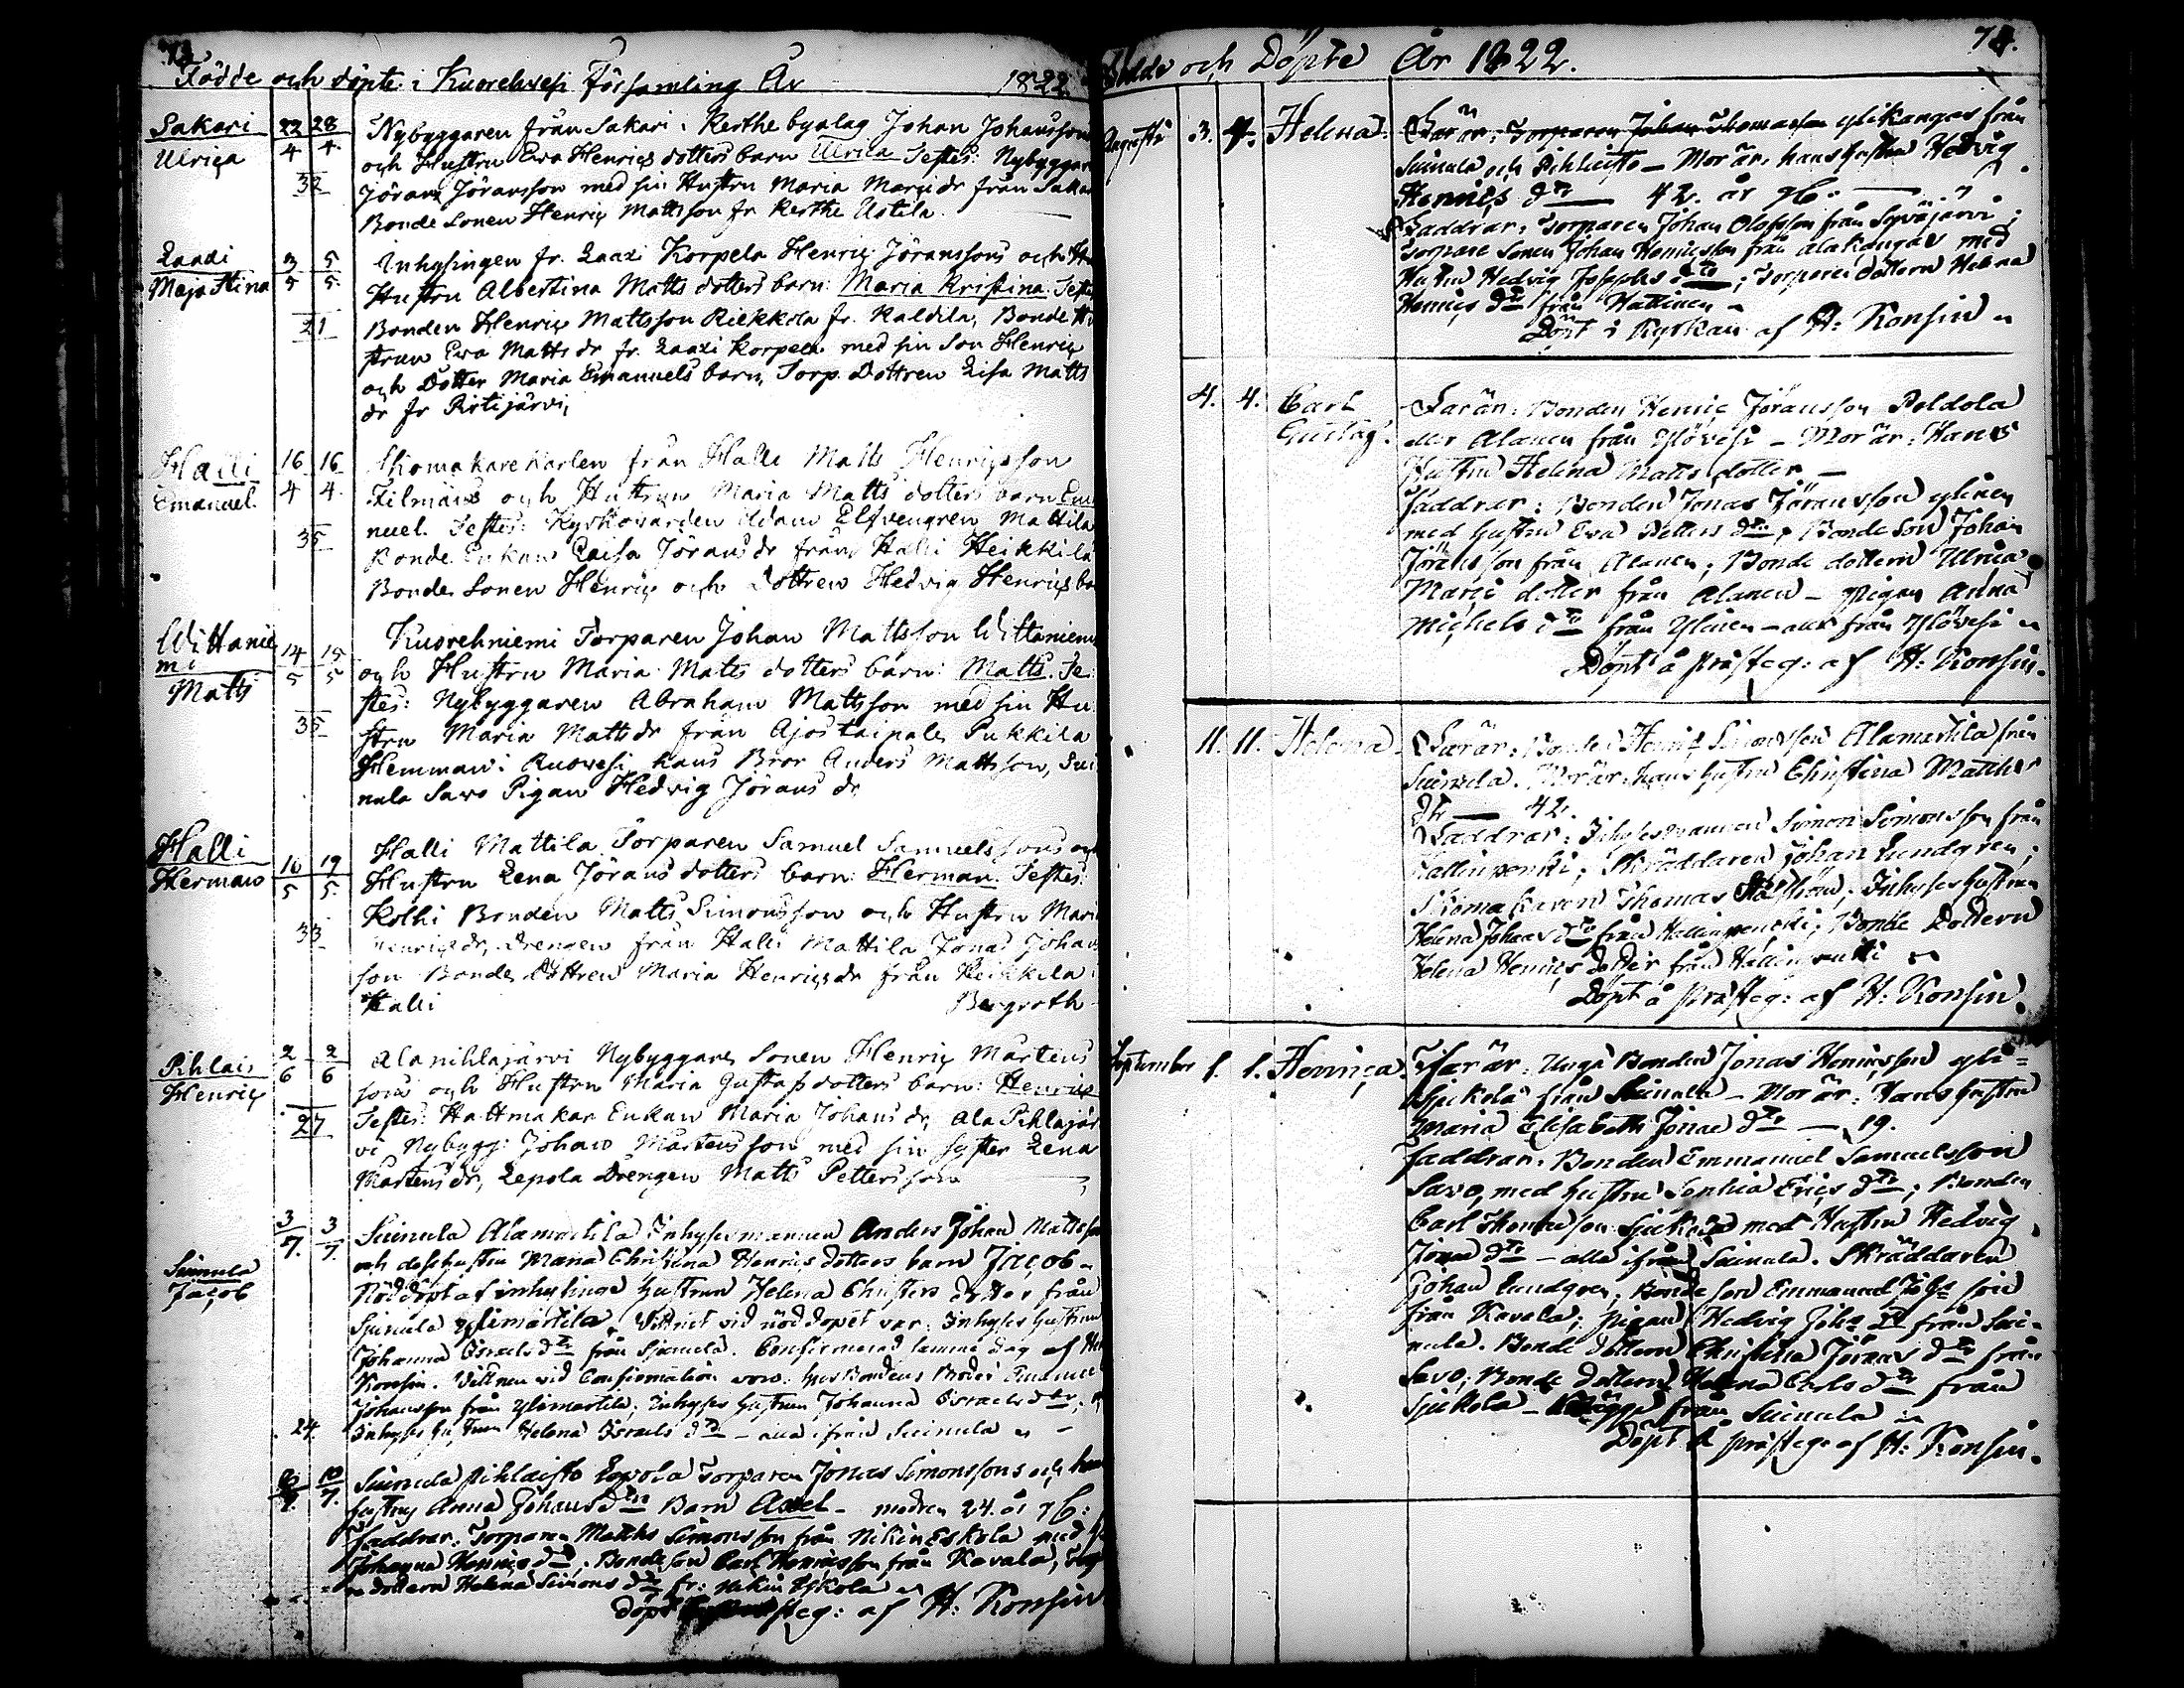 Födde och döpte i Kuorehvesi Församling År 1822.
Sakari
Ulrica
22 28
4 4
32
Nybyggaren från Sakari i Kerthe byalag Johan Johansson
och Hustru Ewa Henrics dotters barn Ulrica Testes: Nybyggar
Jöran Jöransson med sin Hustru Maria Marci dr från Sakar
Bonde Sonen Henric Mattsson fr Kerthe Ustila.
Laaxi
Maja Stina
3 5
5 5
21
Inhysingen fr. Laaxi Korpela Henric Jöranssons och
Hustru Albertina Matts dotters barn: Maria Kristina. Testes
Bonden Henric Mattsson Riekkola fr. Kaldila, Bonde Hu
strun Ewa Matts dr fr. Laaxi Korpela med sin Son Henric
och Dotter Maria Emanuels barn, Torp. Dottren Lisa Matts
dr fr Pirtijärvi,
Halli
Emanuel.
16 16
4 4
35
Skomakare Karlen från Halli Matts Henricsson
Filmans och Hustrun Maria Matts dotters barn Ema
nuel. Testes: Kyrkovärden Adam Elfvengren Mattila
Bonde Enkan Caisa Jörans dr från Halli Heikkilä
Bonde Sonen Henric och Dottren Hedvig Henrics ba
Wittanie
mi
Matts
14 15
5 5
35
Kuorehniemi Torparen Johan Mattsson Wittaniemi
och Hustru Maria Matts dotters barn: Matts. Te
stes: Nybyggaren Abraham Mattsson med sin Hu
stru Maria Matts dr från Ajostaipale, Pukkila
Hemman i Ruovesi, hans Bror Anders Mattsson, Sui
nula Savo Pigan Hedvig Jörans dr
Halli
Herman
16 19
5 5
33
Halli Mattila Torparen Samuel Samuelssons och
Hustru Lena Jörans dotters barn: Herman. Testes:
Kolhi Bonden Matts Simonsson och Hustru Mari
Henrics dr, Drengen från Halli Mattila Jonas Johan
son Bonde Dottren Maria Henrics dr från Heikkila
Halli Bergroth
Pihlais
Henric
2 2
6 6
27
Ala Pihlajärvi Nybyggare Sonen Henric Mårtens
sons och Hustru Maria Gustafs dotters barn: Henric
Testes: Hattmakar Enkan Maria Johans dr, Ala Pihlajär
vi Nybygg: Johan Mårtensson med sin syster Lena
Mårtens dr, Lepola Drengen Matts Pettersson
Suinula
Jacob
3 3
7. 7.
24.
Suinula Alamartila Inhysesmannen Anders Johan Matts son
och dess hustru Maria Christina Henrics dotters barn Jacob
Nöddöpt af inhysinge hustrun Helena Christers dotter från
Suinula Ylimartila. Vittnet vid nöddopet var: Inhyses hustrun
Johanna Israels dr från Suinula. Confirmerad samma dag af
Konsin. Vittnen vid Confirmation voro: husbondens Broder Emanuel
Johansson från Ylimartila; Inhyses hustrun Johanna Israels dr,
Inhyses hustrun Helena Israels dr – alla ifrån Suinula
10
7.
Suinula Pihlaisto Torparen Jonas Simonssons och
hustrus Anna Johans dr Barn Axel – modren 24. år
faddrar: Torparen Matths Simonsson från Nikin Eskola med
Johanna Henrics dr, Bonde son Carl Henricsson från Kavala,
dottern Helena Simons dr fr: Nikin Eskola
döpt steg: af H: Konsin
Födde och Döpte År 1822. 74.
Augusti 3. 4. Helena.
Far är: Torparen Johan Thomasson Ylikangas från
Suinula och Pihlaisto – Mor är, hans hustru Hedvig
Henrics dr 42. år
Faddrar: Torparen Johan Olofsson från Syväjärvi;
Torpare Sonen Johan Henricsson från Alakangas med
Hustru Hedvig Josephs dr; Torpare dottern Helena
Henrics dr från Hattinen
Döpt i Kyrkan af H: Konsin
4. 4. Carl
Gustaf.
Far är: Bonden Henric Jöransson Poldola
eller Alanen från Ylövesi – Mor är: Hans
Hustru Helena Matts dotter –
faddrar: Bonden Jonas Jöransson Ylinen
med hustru Eva Petters dr; Bonde Son Johan
Jöransson från Alanen; Bonde dottern Ulrica
Marci dotter från Alanen – Pigan Anna
Michels dr från Ylinen – alla från Ylövesi
Döpt å prästeg: af H: Konsin.
11. 11. Helena.
Far är: Bonden Henric Simonsson Alamartila från
Suinula. Mor är: hans hustru Christina Matths
dr 42.
Faddrar: Inhysesmannen Simon Simonsson från
Hallinpenki; Skräddaren Johan Lundgren;
Skomakaren Thomas; Inhyses hustrun
Helena Johans dr från Hallinpenki; Bonde Dottern
Helena Henrics dotter från Hallinpenki
Döpt å prästeg: af H: Konsin.
September 1. 1. Henrica.
Far är: Unga Bonden Jonas Henricsson Yli-
Sjukola från Suinula – Mor är: Hans hustru
Maria Elisabeth Jonae dr – 19.
faddrar: Bonden Emmanuel Samuelsson
Savo, med hustru Sophia Erics dr; Bonden
Carl Thomasson Sjukola med Hustru Hedvig
Jonae dr – alla ifrån Suinula. Skräddaren
Johan Lundgren; Bonde son Emmanuel Johs son
från Kavala; Pigan Hedvig Johs dr från Sui-
nula. Bonde dottern Christina Jörans dr från
Savo; Bonde dottern Helena Carls dr från
Sjukola – från Suinula
Döpt å prästeg: af H: Konsin.